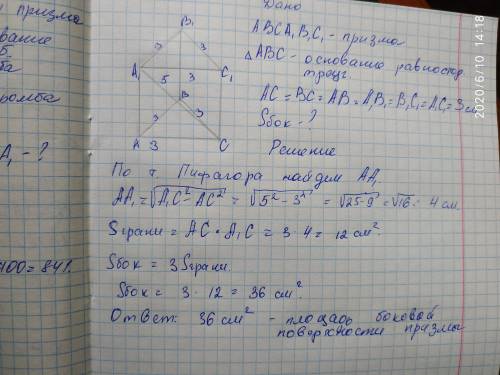 и призма
ование
б
ба
ромба
A₁ - ?
100 = 841.
B₁
3
3
A₁
C₁
5
3
B
3
A 3
C
Дано
ABCA₁B₁C₁ - призма
△ABC - основание равностор.
треуг.
AC = BC = AB = A₁B₁ = B₁C₁ = A₁C₁ = 3 см
Sбок - ?
Решение
По т. Пифагора найдем AA₁
AA₁ = √A₁C² - AC² = √5² - 3² = √25-9 = √16 = 4 см
Sграни = AC • A₁C = 3 · 4 = 12 см².
Sбок = 3 Sграни.
Sбок = 3 · 12 = 36 см².
Ответ: 36 см² - площадь боковой
поверхности призмы
2020/6/10 14:18